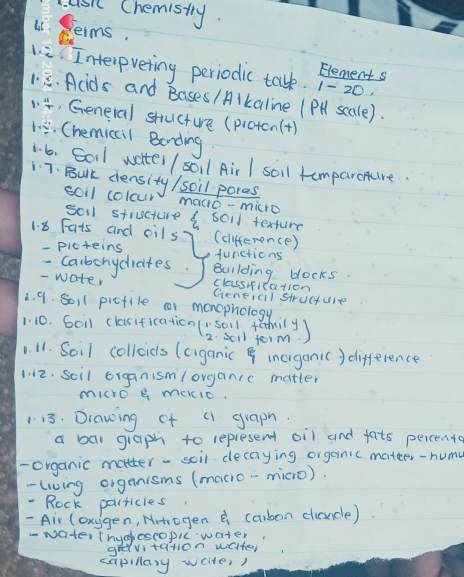 Basic Chemistry.
Terms.
1.2 Interpreting periodic table. Elements 1-20.
1.3. Acids and Bases/Alkaline (PH scale).
1.4. General structure (proton(+)
1.5. Chemical Bonding
1.6. Soil water/soil Air/soil temparature.
1.7. Bulk density/soil pores
soil colour macro-micro
soil structure & soil texture
1.8 Fats and oils (difference)
- proteins functions
- Carbohydrates. Building blocks.
- water classification
General structure
1.9. Soil profile or monophology
1.10. Soil clacification (1. soil family)
2. soil form.
1.11. Soil colloids (organic & inorganic) difference
1.12. soil organism/organic matter
micro & macro.
1.13. Drawing of a graph.
a bar graph to represent oil and fats
-organic matter - soil decaying organic matter-
-Living organisms (macro-micro).
- Rock particles
- Air (oxygen, Nitrogen & carbon dioxide).
- water (hygroscopic water,
gravitation water,
capillary water)